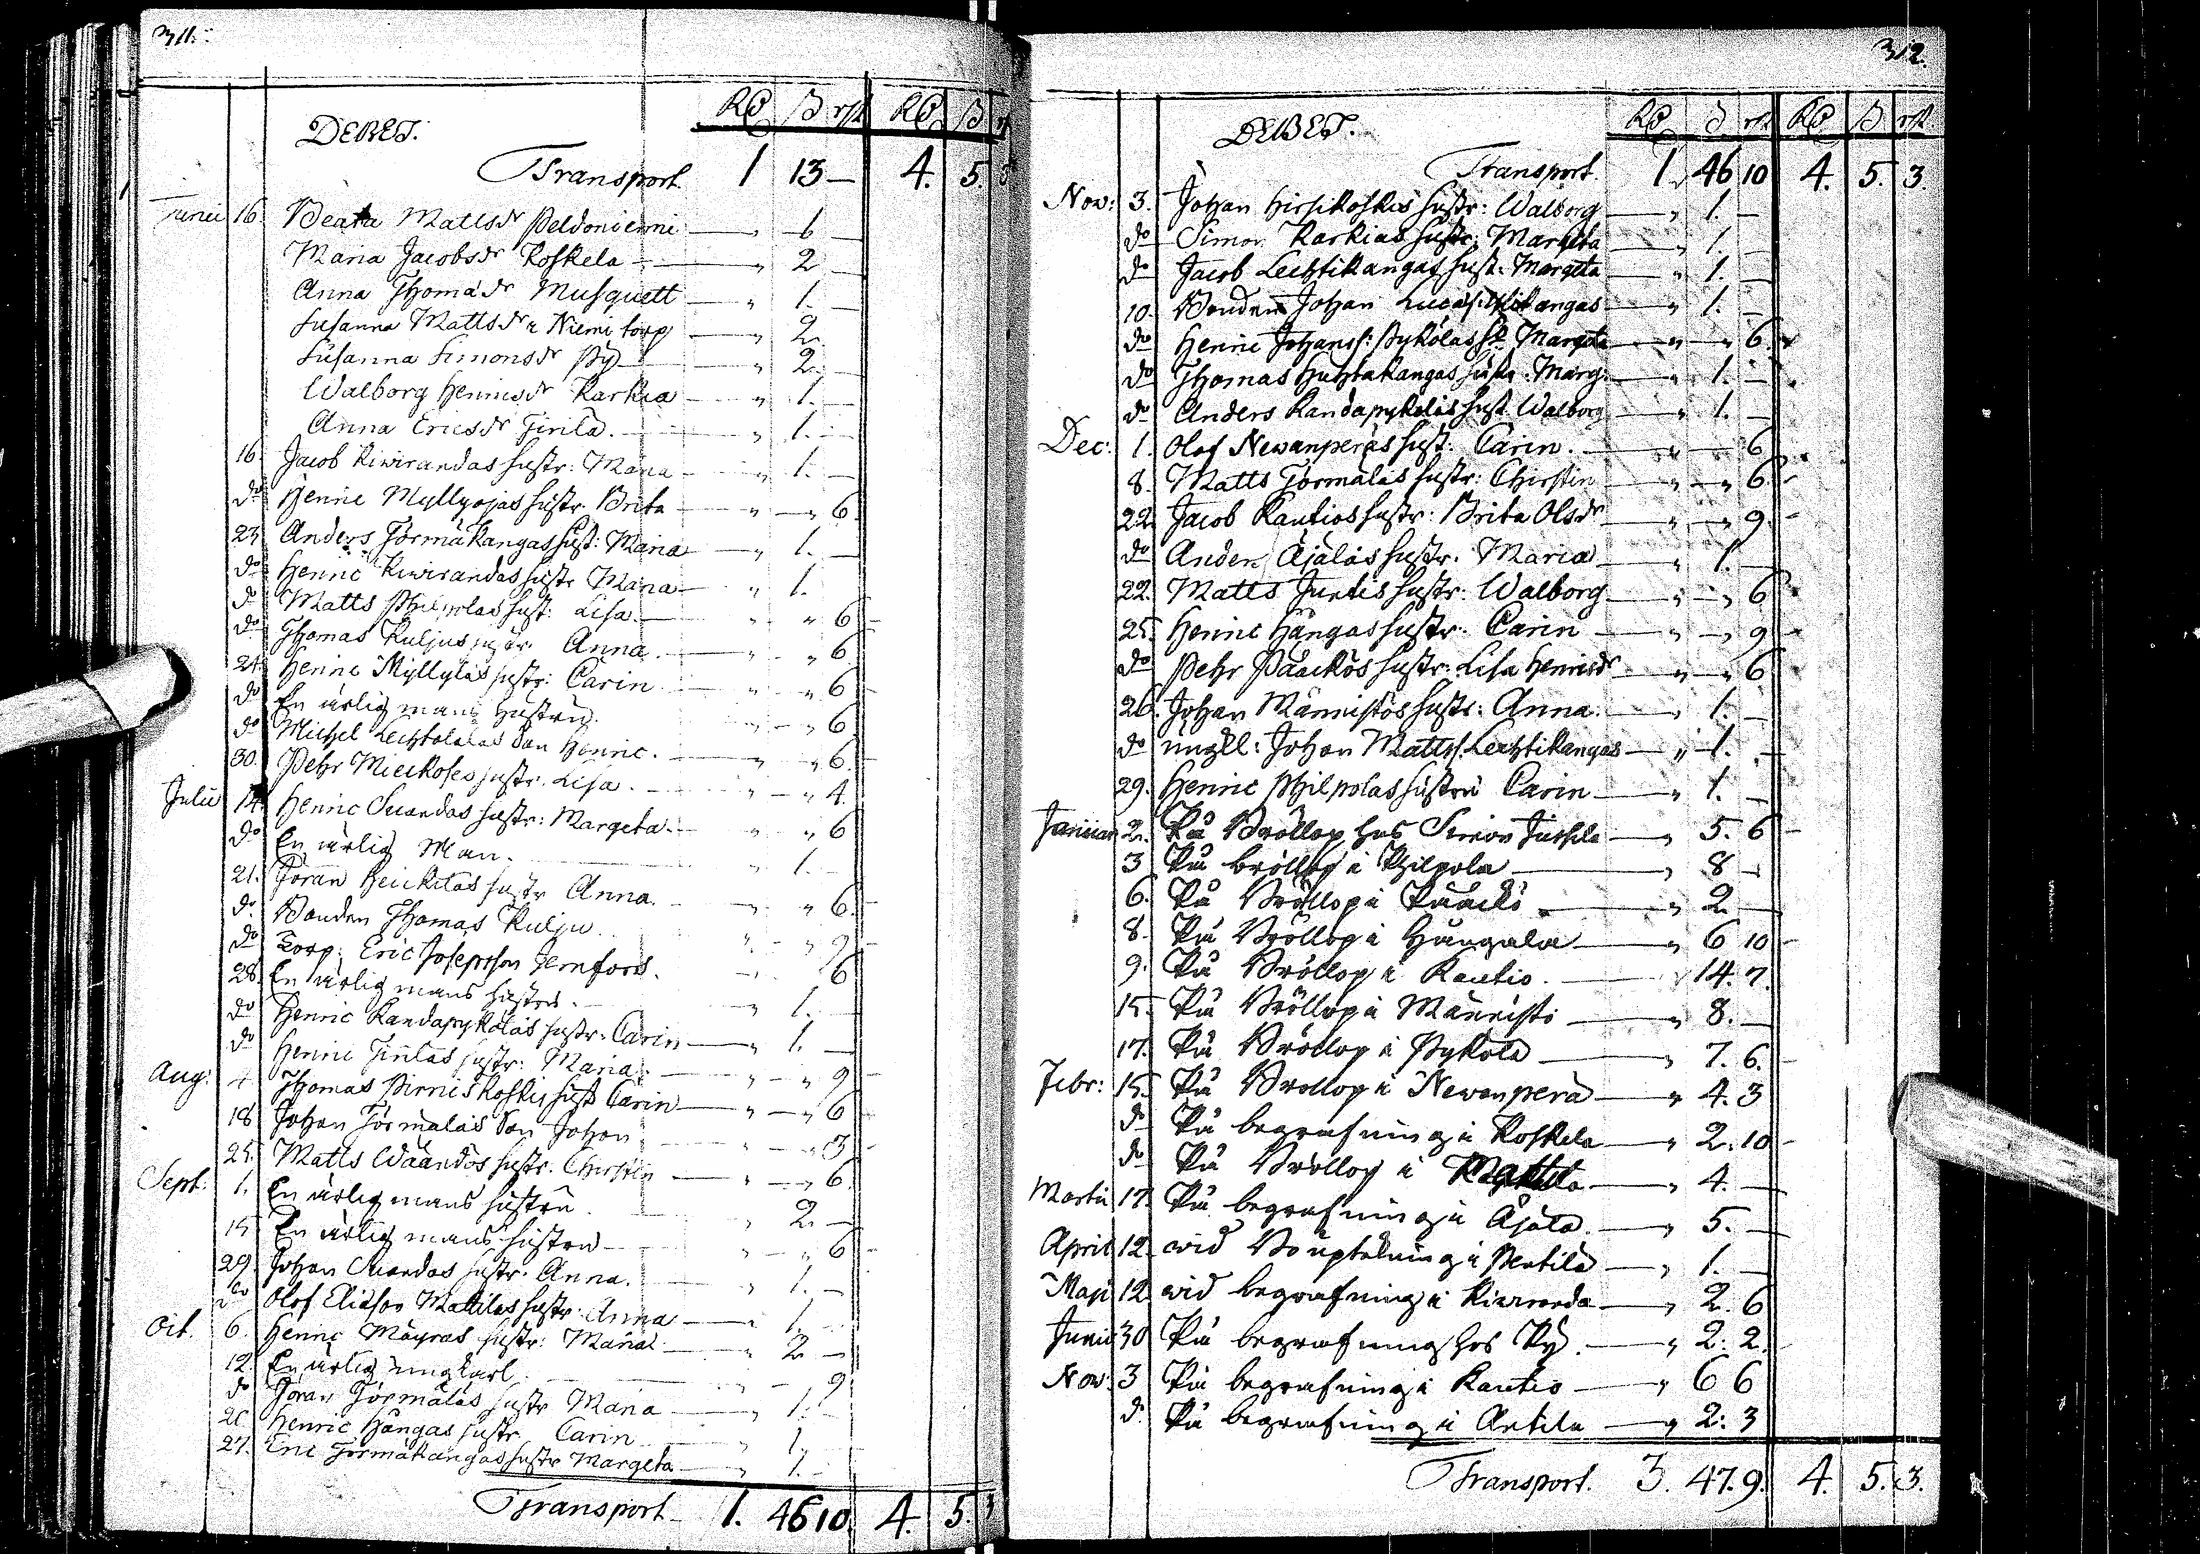 311.
DEBET.
Rd ß rst Rd ß
Transport 1 13 — 4. 5. 3
Junii 16. Beata Mattsdr Peldoniemi — " 6 —
Maria Jacobsdr Koskela — " 2 —
Anna Thomædr Musquett — " 1. —
Susanna Mattsdr Niemi torp — " 2.
Susanna Simonsdr Py — " 2. —
Walborg Henricsdr Karkia — " 1. —
Anna Ericsdr Tirila. — " 1. —
16. Jacob Kiwirandas hustr: Maria — " 1. —
do Henric Myllyojas hustr. Brita — " — " 6.
23. Anders Jörmäkangas hust: Maria — " 1. —
do Henric Kiwirandas hustr Maria — " 1.
do Matts Philpolas hust: Lisa. — " " 6 —
do Thomas Kuljus hustr Anna. — " " 6
24. Henric Myllyläs hustr: Carin — " " 6 —
do En ärlig mans hustru. — " " 6
do Michel Lechtolalas Son Henric. — " " 6. —
30. Pehr Mieckoses hustr. Lisa. — " " 4.
Julii 14. Henric Suandas hustr: Margeta. — " " 6
do En ärlig Man. — " 1. —
21. Jöran Heickiläs hustr Anna. — " " 6. —
do Bonden Thomas Kulju — " " 9 —
do Torp: Eric Josephsson Jernfors. — 6
28. En ärlig mans hustru. — " 1. —
do Henric Kandapykäläs hustr: Carin — " 1. —
do Henric Jintas hustr: Maria. — " — " 9
Aug: 4 Thomas Pirneskoskis hust Carin — " — " 6 —
18 Johan Jörmäläs Son Johan — " 3 —
25. Matts Wäändös hustr. Christin — " — " 6.
Sept: 1. En ärlig mans hustru. — " 2 —
15 En ärlig mans hustru — " — " 6 —
29. Johan Suandas hustr. Anna. — " 1. —
do Olof Eliasson Mattilas hustr. Anna — " 1.
Oct. 6. Henric Mäyras hustr: Maria — " 2 —
12. En ärlig ungkarl. — " — 9
do Jöran Jörmäläs hustr Maria — " 1. —
20 Henric Hångas hustr Carin — " 1.
27. Eric Jörmäkangas hustr Margeta — " 1. —
Transport 1. 46 10. 4. 5. 3
312.
DEBET.
Rd ß. rst Rd ß rst
Transport. 1. 46 10 4. 5. 3.
Nov: 3. Johan Hirsikoskis hustr: Walborg — " 1. —
do Simon Karkias hustr: Margeta — " 1. —
do Jacob Lechtikangas hust: Margeta — " 1. —
10. Bonden Johan — " 1. —
do Henric Johanss: Pyköläs h: Margeta — " " 6.
do Thomas Huhtakangas hustr: Marg: — " 1. —
do Anders Kandapykäläs hust Walborg — " 1. —
Dec: 1. Olof Newanperäs hust: Carin. — " — 6
8. Matts Jörmäläs hustr: Christin — " — " 6.
22. Jacob Rautios hustr: Brita Olsdr — " — " 9. —
do Anders Äjäläs hustr. Maria — " 1. —
22. Matts Juntis hustr: Walborg — " — " 6
25. Henric Hångas hustr: Carin — " — " 9 —
do Pehr Pääckös hustr: Lisa Henricsdr — " — " 6
26. Johan Männistös hustr: Anna. — " 1. —
do ungkl: Johan Mattss. Lechtikangas — " 1. —
29. Henric Philpolas hustru Carin — " 1. —
Januari 2. På Bröllop hos Simon Jussila — " 5. 6 —
3 På bröllop i Philpola — " 8 —
6. På Bröllop i Pääckö — " 2 —
8. På Bröllop i Hångala — " 6 10 —
9. På Bröllop i Rautio. — " 14. 7.
15. På Bröllop i Männistö — " 8. —
17. På Bröllop i Pykölä — " 7. 6. —
Febr: 15. På Bröllop i Newanperä — " 4. 3
do På begrafning i Koskela — " 2. 10 —
do På Bröllop i Mattila — " 4. —
Martii 17. På begrafning i Äjälä. — " 5. —
April 12. wid Bouptekning i Pentilä — " 1. —
Maji 12. wid begrafning i Kiwiranda — " 2. 6
Junii 30 På begrafning hos Py. — " 2. 2.
Nov: 3 På begrafning i Rautio — " 6 6
do På begrafning i Antila — " 2. 3
Transport. 3. 47. 9. 4. 5. 3.